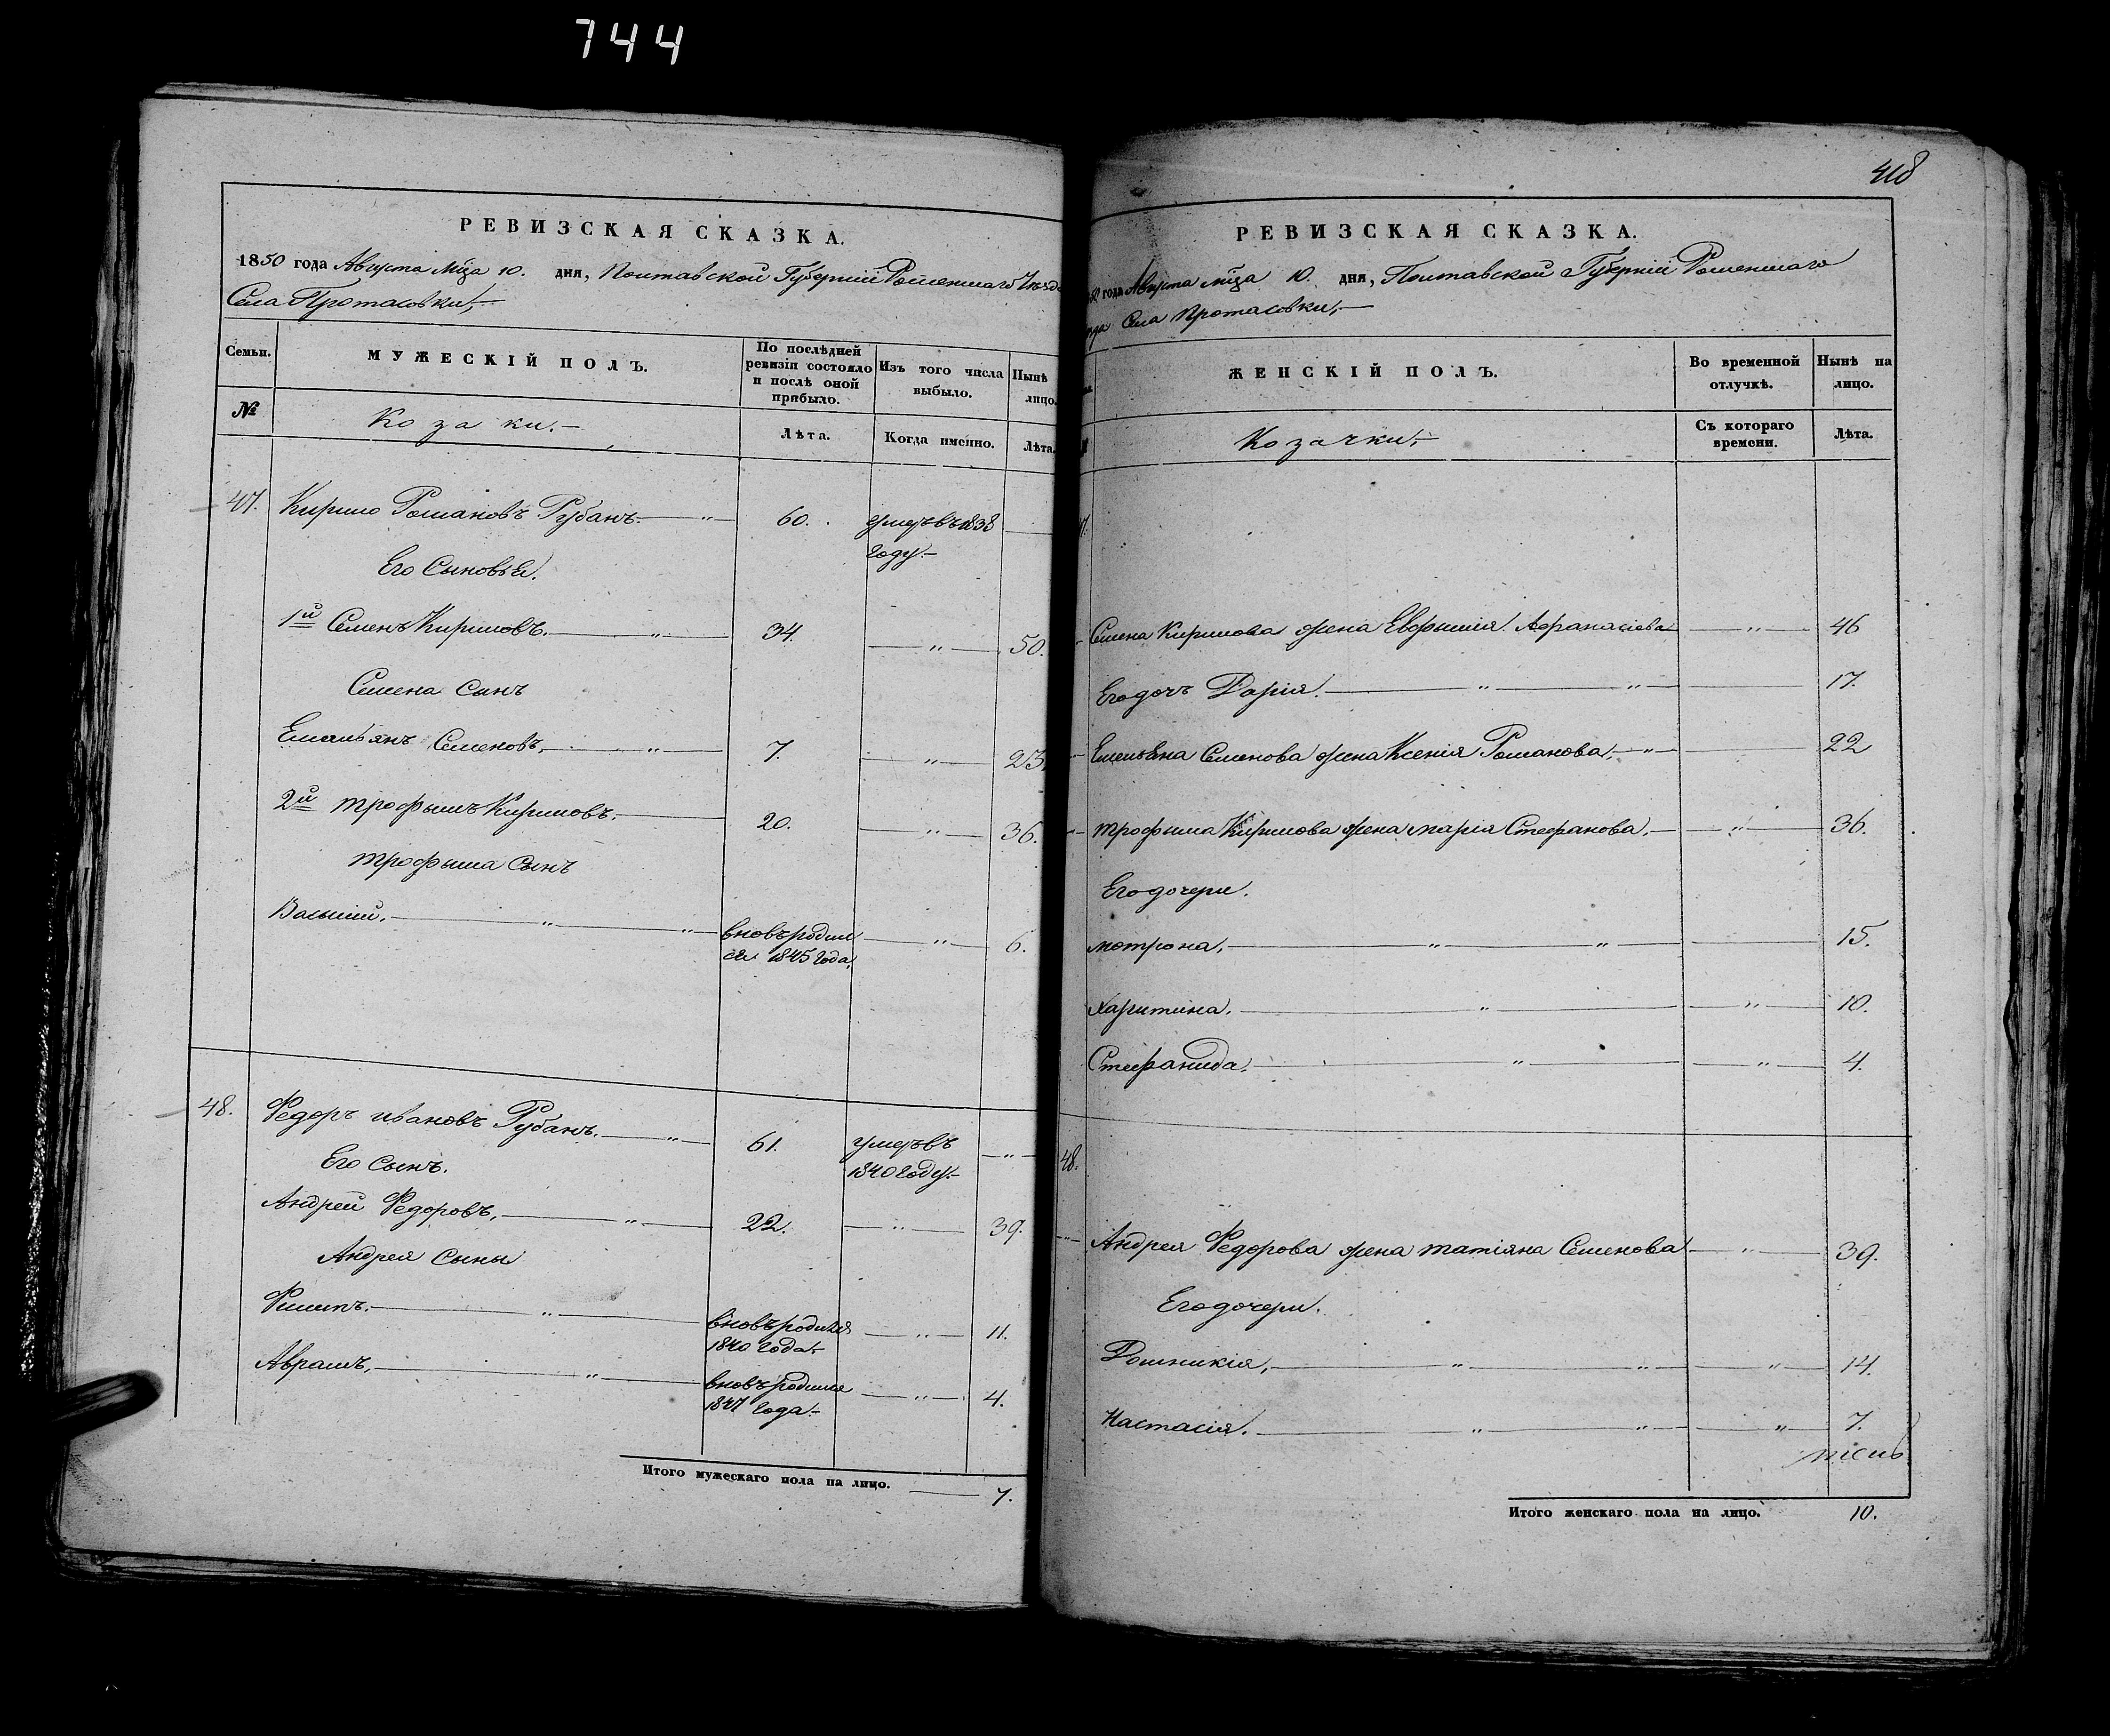 744
РЕВИЗСКАЯ СКАЗКА.
1850 года Августа мца 10. дня, Полтавской Губерніи Роменшаго Уезд
Села Протасовки,
Семьи. МУЖЕСКІЙ ПОЛЪ. По послѣдней ревизіи состояло и послѣ оной прибыло. Изъ того числа выбыло. Нынѣ лицо.
№ Козаки. Лѣта. Когда именно. Лѣта.
47. Кирило Романовъ Рубанъ. 60. умеръ въ 1838
году.
Его Сыновья.
1й Семенъ Кириловъ. 34. 50.
Семена Сынъ
Емельянъ Семеновъ. 7. 23
2й Трофымъ Кириловъ. 20. 36.
Трофыма Сынъ
Васылій. вновъ родил 6.
ся 1845 года.
48. Федоръ Ивановъ Рубанъ. 61. умеръ въ
1840 году.
Его Сынъ.
Андрей Федоровъ. 22. 39.
Андрея Сыны
Филипъ. вновъ родился 11.
1840 года.
Аврамъ. вновъ родился 4.
1847 года.
Итого мужескаго пола на лицо. 7.
418
РЕВИЗСКАЯ СКАЗКА.
года Августа мца 10. дня, Полтавской Губерніи Роменшаго
Села Протасовки,
ЖЕНСКІЙ ПОЛЪ. Во временной отлучкѣ. Нынѣ на лицо.
Козачки. Съ котораго времени. Лѣта.
Семена Кирилова жена Евфымія Афанасіева 46
Его дочъ Дарія. 17.
Емельяна Семенова жена Ксенія Романова. 22
Трофыма Кирилова жена Марія Стефанова. 36.
Его дочери.
Мотрона. 15.
Харитина. 10.
Стефанида. 4.
48.
Андрея Федорова жена Татіяна Семенова 39.
Его дочери.
Домникія. 14.
Настасія. 7.
Итого женскаго пола на лицо. 10.